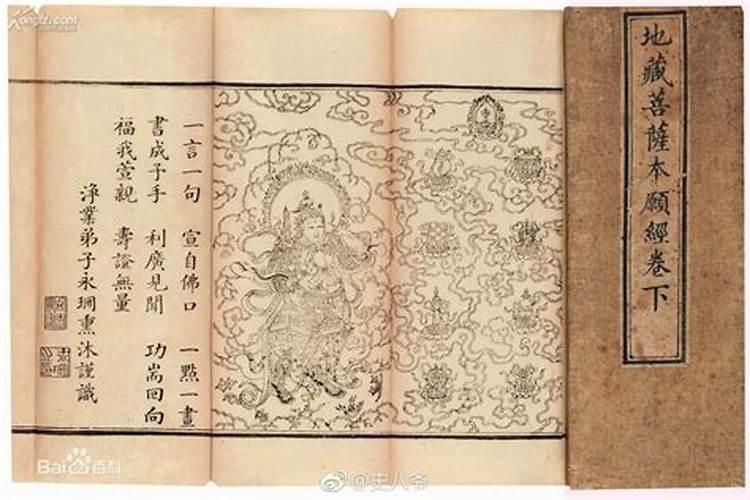 地藏菩薩本願經卷下
一言一句 宣自佛口 一點一畫
書成予手 利廣見聞 功嵩回向
福我萱親 壽證無量
淨業弟子永珊熏沐謹識
Kongfz.com
Bai百科
@史人爷